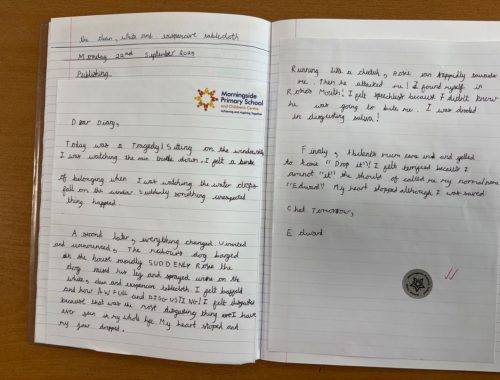 the clean, white and expensive tablecloth
Monday 22nd September 2025
Publishing
Morningside
Primary School
and Children's Centre
Achieving and Aspiring Together
Dear Diary,
Today was a Tragedy! Sitting on the windowsill
I was watching the rain trickle down. I felt a sense
of belonging when I was watching the water drops
fall on the window. Suddenly something unexpected
thing happend
A second later, everything changed. Uninvited
and unannounced, The neibours dog barged
in the house rapidly. SUDDENLY Rosie the
dog raised his leg and sprayed urine on the
white, clean and expensive tablecloth. I felt baffled
and how AWFULL and DISGUSTING! I felt disgusted
because that was the most disgusting thing I have
ever seen in my whole life. My heart stoped and
my jaw dropped.
Running like a cheetah, Rosie ran rappidly towards
me. Then he attacked me! I found myself in
Rosies Mouth! I felt speechless because I didn't know
he was going to bite me. I was drooled
in disgusting saliva!
Finaly, mum came and and yelled
to Rosie "Drop it"! I felt because I
am not "it" she should of called me my normal name
"Edward" My heart stopped although I was saved
Chat Tomorrow,
Edward